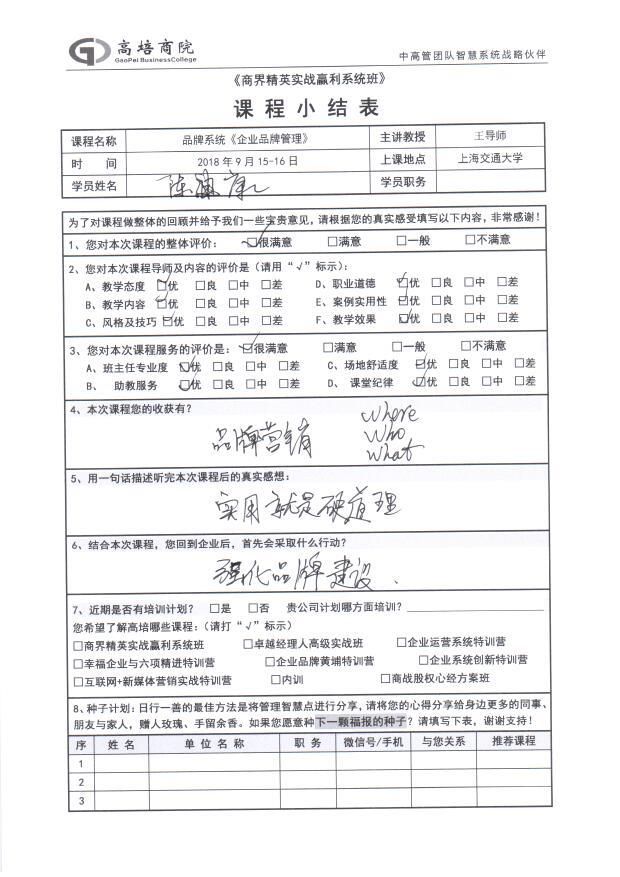 高培商院
GaoPei BusinessCollege
中高管团队智慧系统战略伙伴
《商界精英实战赢利系统班》
课程小结表
课程名称 品牌系统《企业品牌管理》 主讲教授 王导师
时 间 2018年9月15-16日 上课地点 上海交通大学
学员姓名 陈 康 学员职务
为了对课程做整体的回顾并给予我们一些宝贵意见,请根据您的真实感受填写以下内容,非常感谢!
1、您对本次课程的整体评价: ☑很满意 □满意 □一般 □不满意
2、您对本次课程导师及内容的评价是(请用“√”标示):
A、教学态度 ☑优 □良 □中 □差 D、职业道德 ☑优 □良 □中 □差
B、教学内容 ☑优 □良 □中 □差 E、案例实用性 ☑优 □良 □中 □差
C、风格及技巧 ☑优 □良 □中 □差 F、教学效果 ☑优 □良 □中 □差
3、您对本次课程服务的评价是: ☑很满意 □满意 □一般 □不满意
A、班主任专业度 ☑优 □良 □中 □差 C、场地舒适度 ☑优 □良 □中 □差
B、 助教服务 ☑优 □良 □中 □差 D、课堂纪律 ☑优 □良 □中 □差
4、本次课程您的收获有?
品牌营销
Where
Who
What
5、用一句话描述听完本次课程后的真实感想:
实用就是硬道理
6、结合本次课程,您回到企业后,首先会采取什么行动?
强化品牌建设、
7、近期是否有培训计划? □是 □否 贵公司计划哪方面培训?
您希望了解高培哪些课程:(请打“√”标示)
□商界精英实战赢利系统班 □卓越经理人高级实战班 □企业运营系统特训营
□幸福企业与六项精进特训营 □企业品牌黄埔特训营 □企业系统创新特训营
□互联网+新媒体营销实战特训营 □内训 □商战股权心经方案班
8、种子计划:日行一善的最佳方法是将管理智慧点进行分享,请将您的心得分享给身边更多的同事、
朋友与家人,赠人玫瑰、手留余香。如果您愿意种下一颗福报的种子?请填写下表,谢谢支持!
序 姓名 单位名称 职务 微信号/手机 与您关系 推荐课程
1
2
3